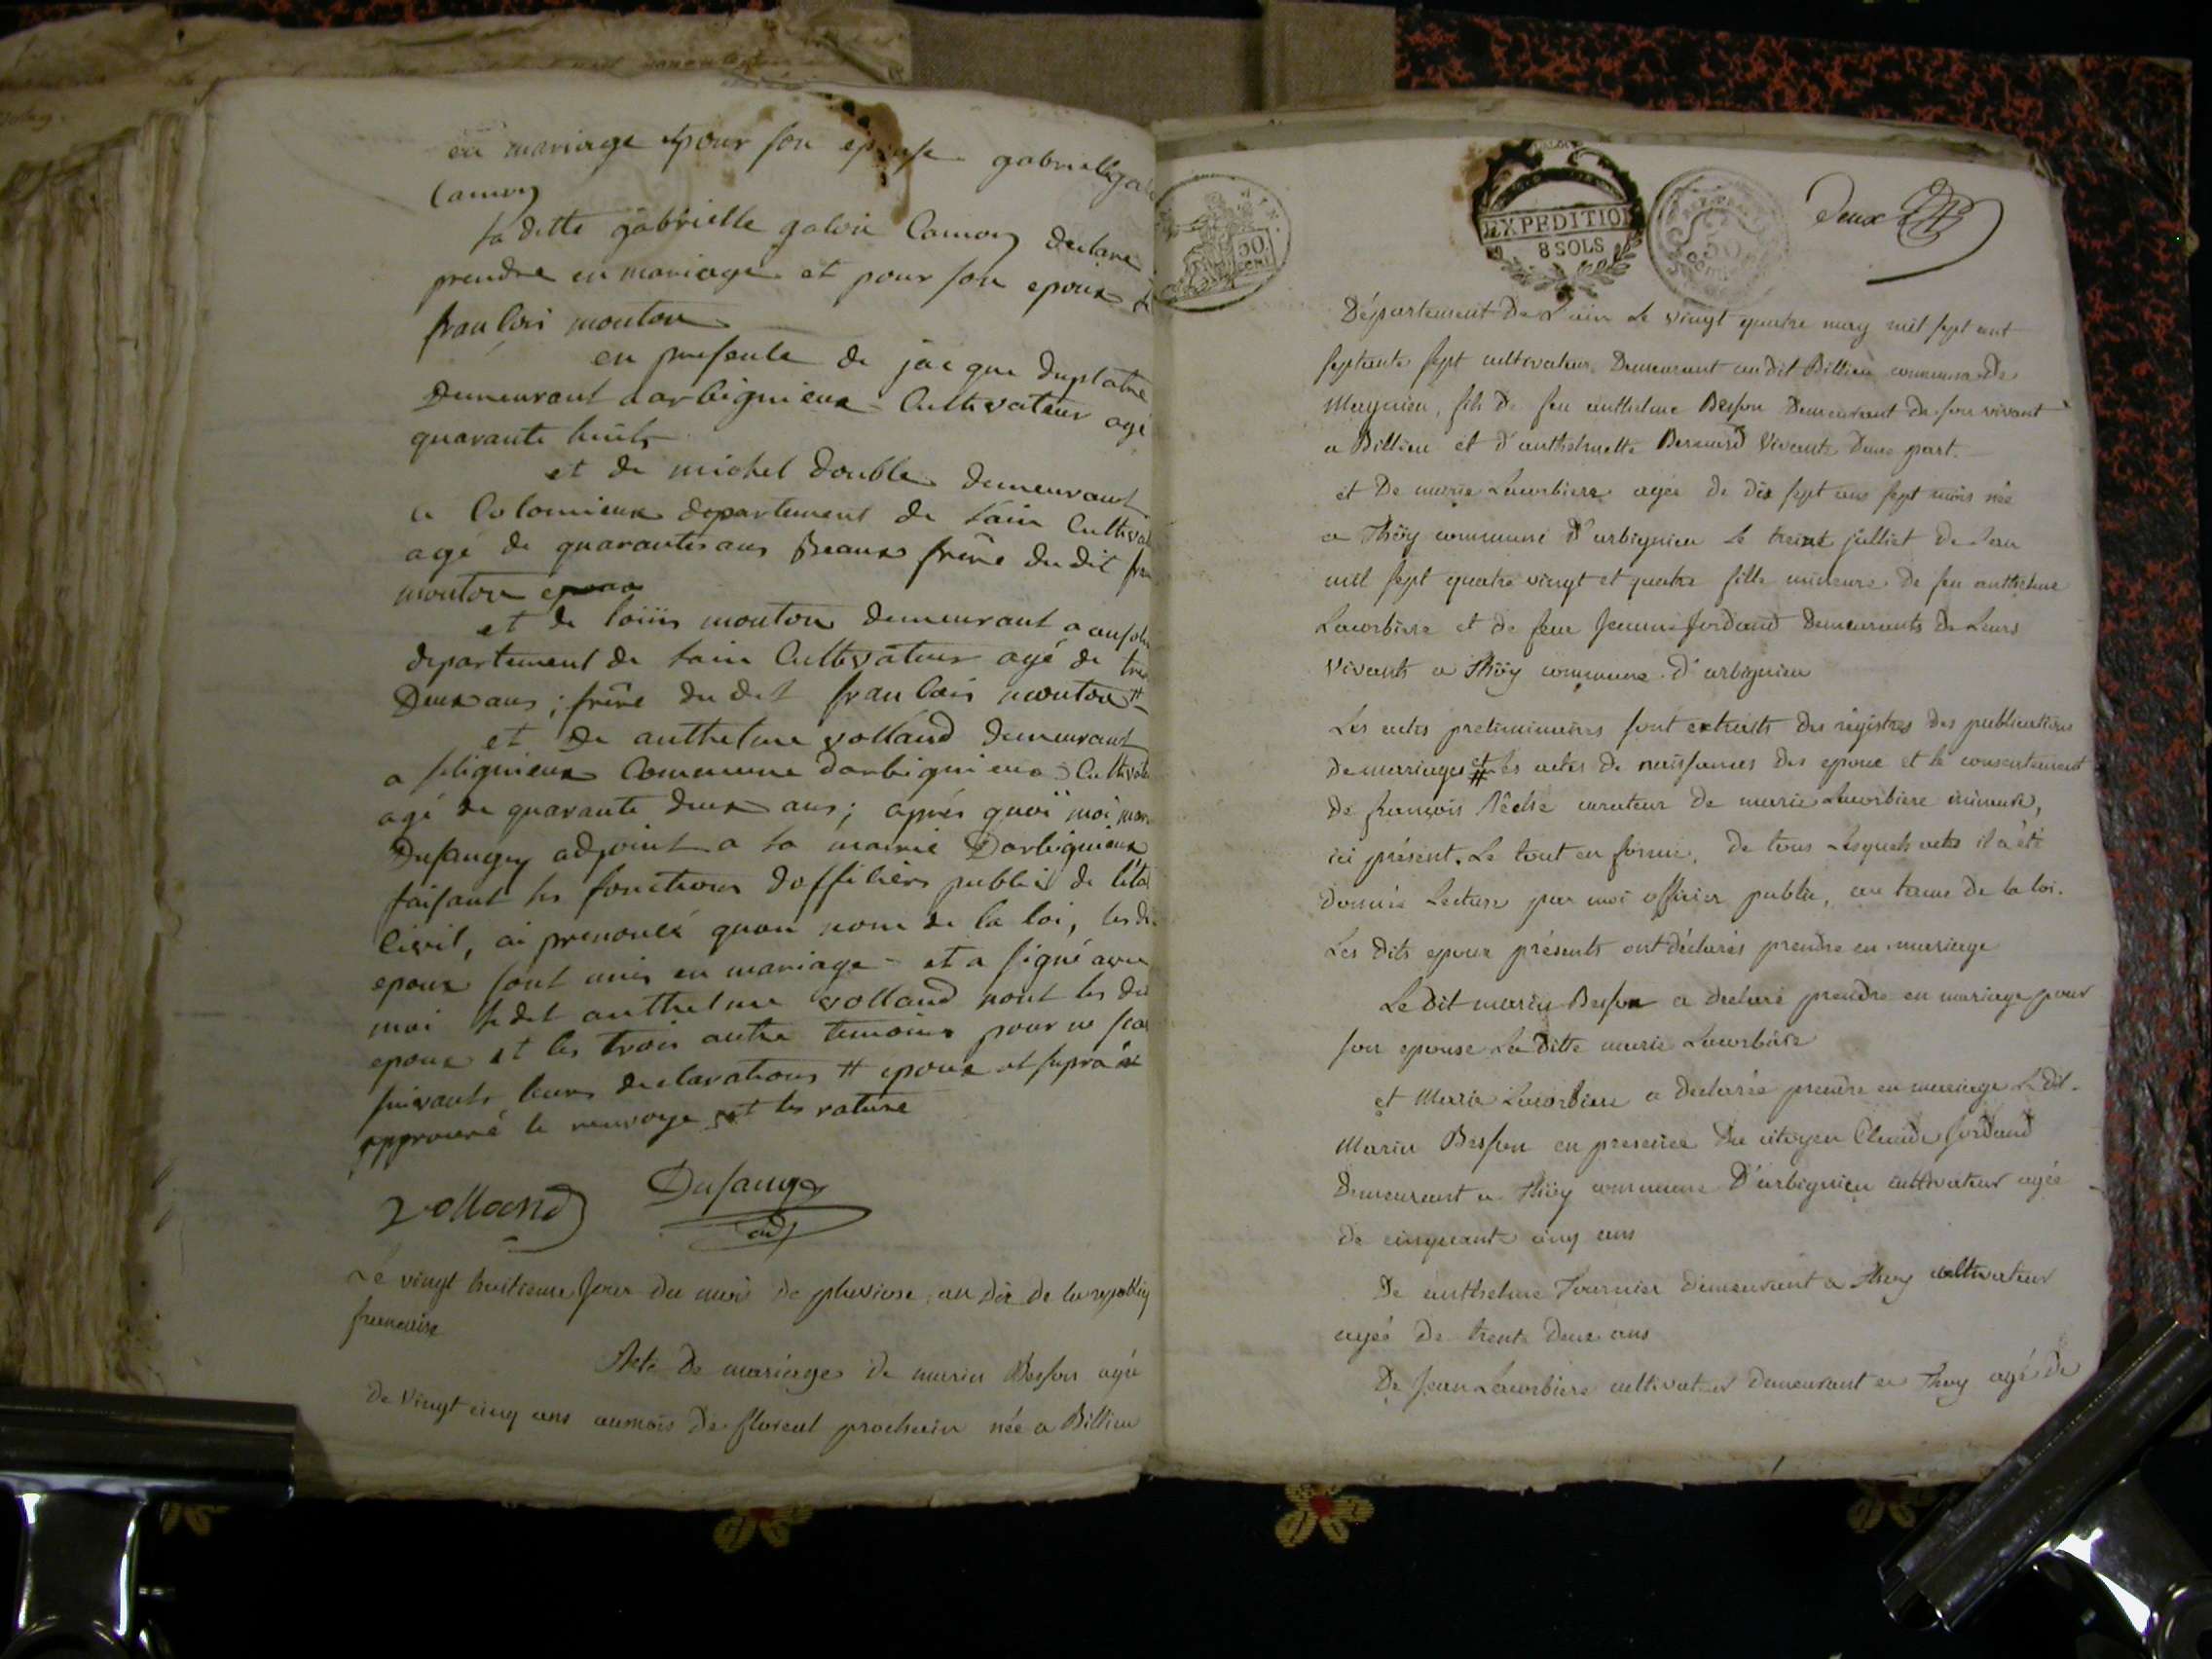 en mariage pour son epouse gabrielle
Camoz
la ditte gabrielle galoin Camoz declare
prendre en mariage et pour son epoux
francois mouton
en presente de jacque duplatre
Demeurant darbignieux Cultivateur agé
quarante huits
et de michel double demeurant
a Colomieux departement de lain
agé de quarantes ans Beaux frêre du dit
mouton
et de loüis mouton demeurant a
departement de lain Cultivateur agé de
Deux ans ; frêre du dit francois mouton #
et de anthelme volland demeurant
a Commune darbignieux
agé de quarante deux ans ; aprés quoi moi
Dufaugey adjoint a la mairie Darbignieux
faisant les fonctions dofficiers public de
Civil, ai prenoncé quau nom de la loi, les
epoux sont unis en mariage et a signé avec
moi le dit anthelme volland nont les
epoux et les trois autre temoins pour ne
suivants leurs declarations # epoux et
approuvé le renvoye et les rature
Volland
Dufaugey
adj
Le vingt huitieme jour du mois de pluviose an dix de la
francaise
Acte De mariages de marin Besson agé
de Vingt cinq ans aumois de floreal prochain née a Billieu
EXPEDITION
8 SOLS
50
CENT
50
deux
Département De Lain Le vingt quatre may mil sept cent
septante sept cultivateur Demeurant au dit Billieu commune De
Magnieu, fils De feu anthelme Besson Demeurant de son vivant
a Billieu et d'anthelmette Bernard Vivante D'une part
et De marie Lacorbiere agée de dix sept ans sept mois née
a Thöy commune D'arbignieu le treint juilliet de Lan
mil sept quatre vingt et quatre fille mineure De feu anthelme
Lacorbiere et de feue Jeanne Jordand Demeurants De Leurs
Vivants a Thöy commune D'arbignieu
Les actes preliminaires sont extraits des régistres des publications
De marriages et # les actes de naissances des epoux et le consentement
de françois curateur de marie Lacorbiere mineure,
ici présent. Le tout en forme, De tous Lesquels actes il a été
donnée Lecture par moi officier public, au terme De la loi.
Les Dits epoux présents ont déclarés prendre en mariage
Le Dit marin Besson a declaré prendre en mariage pour
son epouse La Ditte marie Lacorbiere
et Marie Lacorbiere a declarée prendre en mariage Le Dit
Marin Besson en presence Du citoyen Claude Jordand
Demeurant a Thöy commune D'arbignieu cultivateur agée
De cinquante cinq ans
De anthelme Fournier demeurant a Thoy cultivateur
agée De trente Deux ans
De Jean Lacorbiere cultivateur Demeurant a Thoy agé De